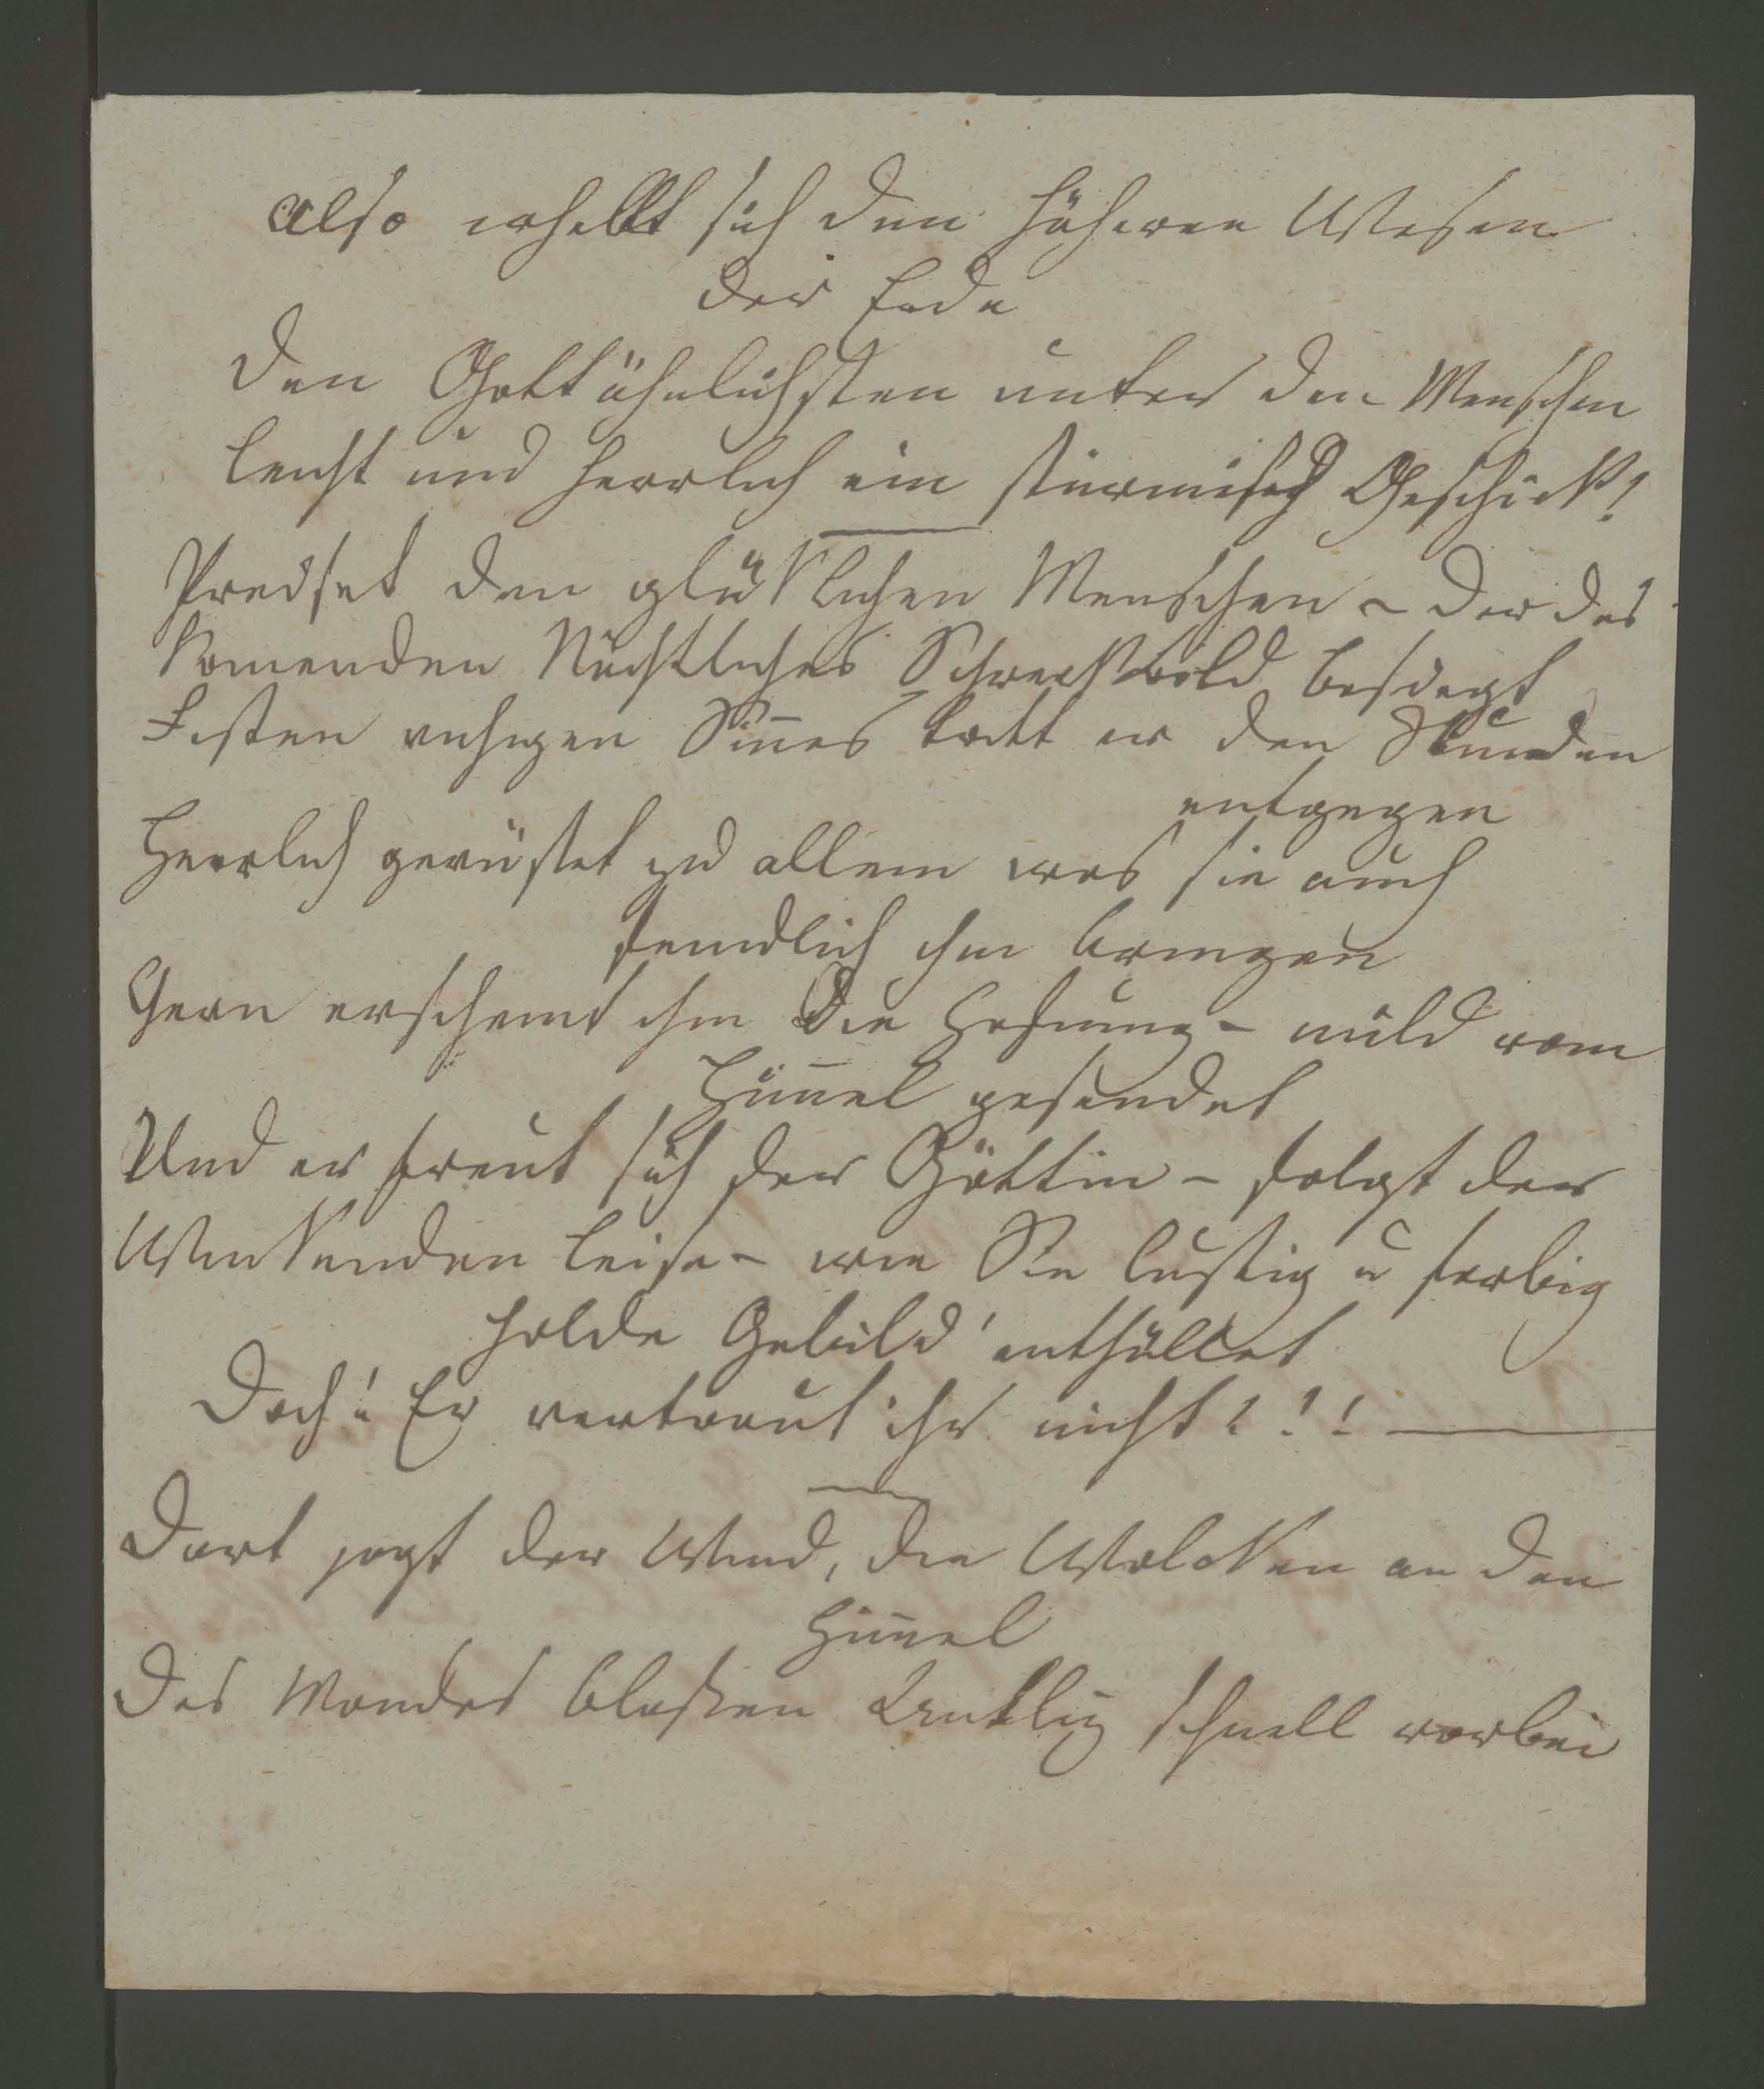 Also erhellt sich den höheren Wesen
der Erde
Den Gottähnlichsten unter den Menschen
leicht und herrlich ein stürmisch Geschick!
Preiset den glüklichen Menschen – der des
Komenden Nächtliches Schreckbild besiegt
Festen ruhigen Sin̄es tritt er den Stunden
entgegen
Herrlich gerüstet zu allem was sie auch
feindlich ihm bringen
Gern erscheint ihm die Hofnung – mild vom
Him̄el gesendet
Und er freut sich der Göttin – folgt der
Winkenden leise – wie Sie lustig u farbig
holde Gebild' enthüllet
Doch! Er vertraut ihr nicht!!!
Dort jagt der Wind, die Wolken an den
Him̄el
Des Mondes blassen Antliz schnell vorbei